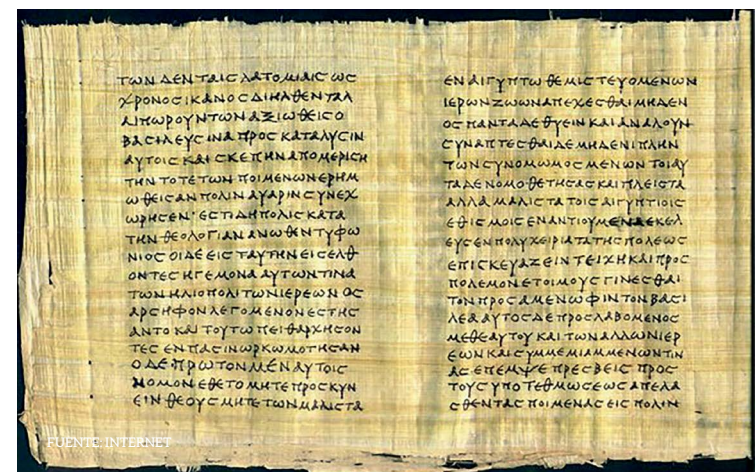 ΤΩΝΔΕΝΤΑΙϹΛΑΤΟΜΙΑΙϹΩϹ
ΧΡΟΝΟϹΙΚΑΝΟϹΔΙΗΛΘΕΝΤΑΛ
ΑΙΠΩΡΟΥΝΤΩΝΑΞΙΩΘΕΙϹΟ
ΒΑϹΙΛΕΥϹΙΝΑΠΡΟϹΚΑΤΑΛΥϹΙΝ
ΑΥΤΟΙϹΚΑΙϹΚΕΠΗΝΑΠΟΜΕΡΙϹΗ
ΤΗΝΤΟΤΕΤΩΝΠΟΙΜΕΝΩΝΕΡΗΜ
ΩΘΕΙϹΑΝΠΟΛΙΝΑΥΑΡΙΝϹΥΝΕΧ
ΩΡΗϹΕΝ·ΕϹΤΙΔΗΠΟΛΙϹΚΑΤΑ
ΤΗΝΘΕΟΛΟΓΙΑΝΑΝΩΘΕΝΤΥΦΩ
ΝΙΟϹΟΙΔΕΕΙϹΤΑΥΤΗΝΕΙϹΕΛΘ
ΟΝΤΕϹΗΓΕΜΟΝΑΑΥΤΩΝΤΙΝΑ
ΤΩΝΗΛΙΟΠΟΛΙΤΩΝΙΕΡΕΩΝΟϹ
ΑΡϹΗΦΟΝΛΕΓΟΜΕΝΟΝΕϹΤΗϹ
ΑΝΤΟΚΑΙΤΟΥΤΩΠΕΙΘΑΡΧΗϹΟΝ
ΤΕϹΕΝΠΑϹΙΝΩΡΚΩΜΟΤΗϹΑΝ
ΟΔΕΠΡΩΤΟΝΜΕΝΑΥΤΟΙϹ
ΝΟΜΟΝΕΘΕΤΟΜΗΤΕΠΡΟϹΚΥΝ
ΕΙΝΘΕΟΥϹΜΗΤΕΤΩΝΜΑΛΙϹΤΑ
ΕΝΑΙΓΥΠΤΩΘΕΜΙϹΤΕΥΟΜΕΝΩΝ
ΙΕΡΩΝΖΩΩΝΑΠΕΧΕϹΘΑΙΜΗΔΕΝ
ΟϹΠΑΝΤΑΔΕΘΥΕΙΝΚΑΙΑΝΑΛΟΥΝ
ϹΥΝΑΠΤΕϹΘΑΙΔΕΜΗΔΕΝΙΠΛΗΝ
ΤΩΝϹΥΝΟΜΩΜΟϹΜΕΝΩΝΤΟΙΑΥ
ΤΑΔΕΝΟΜΟΘΕΤΗϹΑϹΚΑΙΠΛΕΙϹΤΑ
ΑΛΛΑΜΑΛΙϹΤΑΤΟΙϹΑΙΓΥΠΤΙΟΙϹ
ΕΘΙϹΜΟΙϹΕΝΑΝΤΙΟΥΜΕΝΑΕΚΕΛ
ΕΥϹΕΝΠΟΛΥΧΕΙΡΙΑΤΑΤΗϹΠΟΛΕΩϹ
ΕΠΙϹΚΕΥΑΖΕΙΝΤΕΙΧΗΚΑΙΠΡΟϹ
ΠΟΛΕΜΟΝΕΤΟΙΜΟΥϹΓΙΝΕϹΘΑΙ
ΤΟΝΠΡΟϹΑΜΕΝΩΦΙΝΤΟΝΒΑϹΙ
ΛΕΑΑΥΤΟϹΔΕΠΡΟϹΛΑΒΟΜΕΝΟϹ
ΜΕΘΕΑΥΤΟΥΚΑΙΤΩΝΑΛΛΩΝΙΕΡ
ΕΩΝΚΑΙϹΥΜΜΕΜΙΑΜΜΕΝΩΝΤΙΝ
ΑϹΕΠΕΜΨΕΠΡΕϹΒΕΙϹΠΡΟϹ
ΤΟΥϹΥΠΟΤΕΘΜΩϹΕΩϹΑΠΕΛΑ
ϹΘΕΝΤΑϹΠΟΙΜΕΝΑϹΕΙϹΠΟΛΙΝ
FUENTE: INTERNET